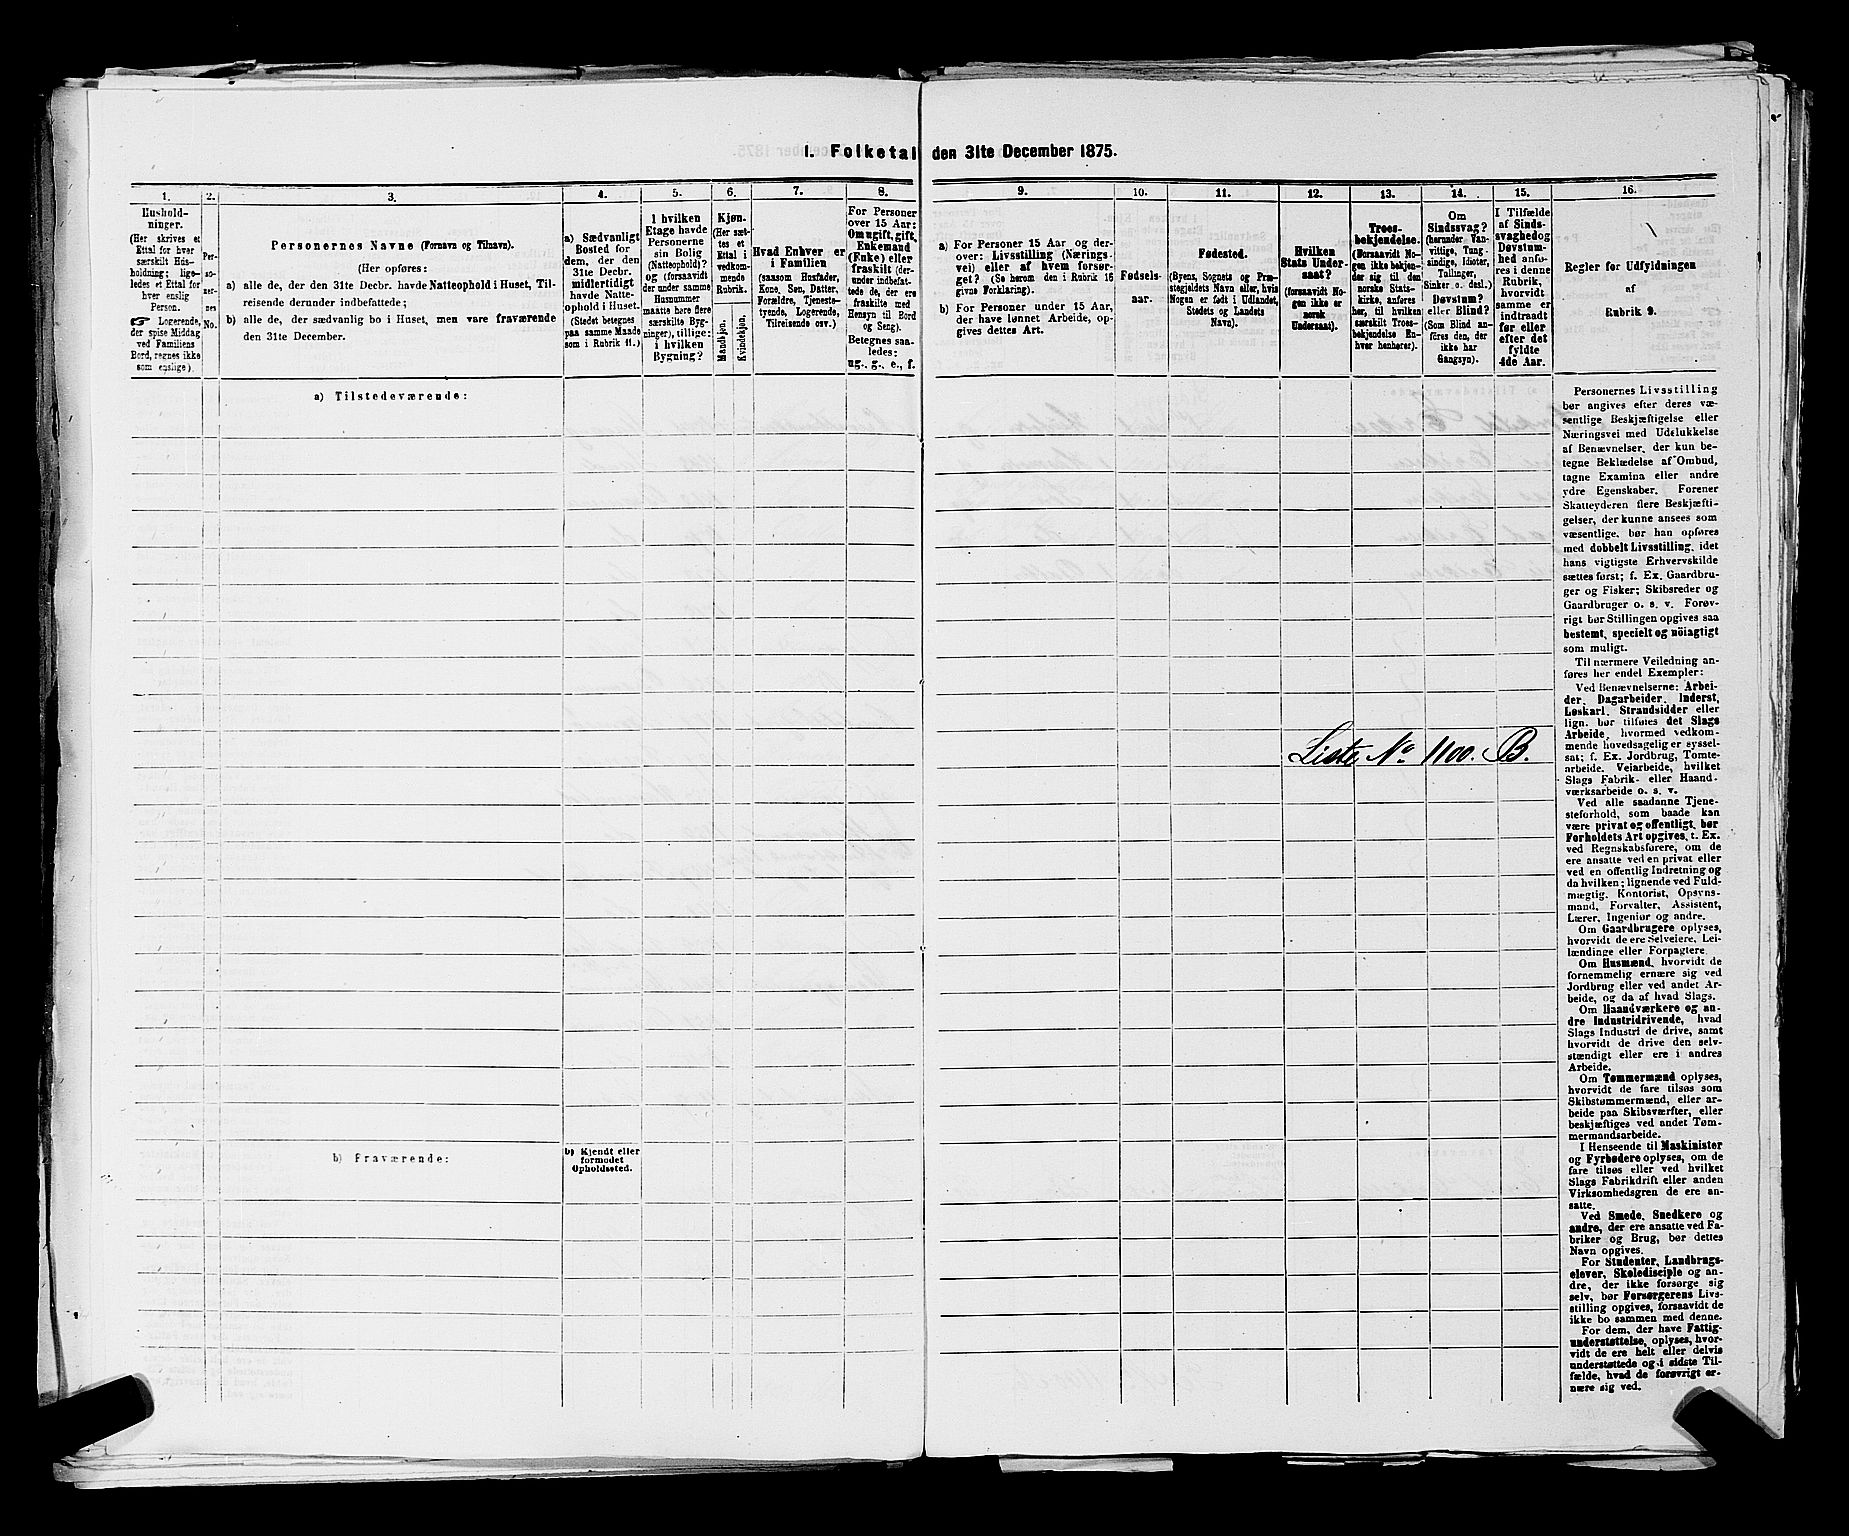 I. Folketal den 31te December 1875.
1.
Hushold-
ninger.
(Her skrives et
Ettal for hver
særskilt Hus-
holdning; lige-
ledes et Ettal for
hver enslig
Person.
☞ Logerende,
der spise Middag
ved Familiens
Bord, regnes ikke
som enslige).
2.
Per-
so-
ner-
nes
No.
3.
Personernes Navne (Fornavn og Tilnavn).
(Her opføres:
a) alle de, der den 31te Decbr. havde Natteophold i Huset, Til-
reisende derunder indbefattede;
b) alle de, der sædvanlig bo i Huset, men vare fraværende
den 31te December.
4.
a) Sædvanligt
Bosted for
dem, der den
31te Decbr.
midlertidigt
havde Natte-
ophold i Huset.
(Stedet betegnes
paa samme Maade
som i Rubrik 11.)
5.
I hvilken
Etage havde
Personerne
sin Bolig
(Natteophold)?
og (forsaavidt
der under samme
Husnummer
maatte høre flere
særskilte Byg-
ninger), tillige:
i hvilken
Bygning?
6.
Kjøn.
(Her sæt-
tes et
Ettal i
vedkom-
mende
Rubrik.
Mandkjøn.
Kvindekjøn.
7.
Hvad Enhver er
i Familien
(saasom Husfader,
Kone, Søn, Datter,
Forældre, Tjeneste-
tyende, Logerende,
Tilreisende osv.)
8.
For Personer
over 15 Aar:
Om ugift, gift,
Enkemand
(Enke) eller
fraskilt (der-
under indbefat-
tede de, der ere
fraskilte med
Hensyn til Bord
og Seng).
Betegnes saa-
ledes:
ug., g., e., f.
9.
a) For Personer 15 Aar og der-
over: Livsstilling (Nærings-
vei) eller af hvem forsør-
get? (Se herom den i Rubrik 16
givne Forklaring).
b) For Personer under 15 Aar,
der have lønnet Arbeide, op-
gives dettes Art.
10.
Fødsels-
aar.
11.
Fødested.
(Byens, Sognets og Præ-
stegjeldets Navn eller, hvis
Nogen er født i Udlandet,
Stedets og Landets
Navn).
12.
Hvilken
Stats Under-
saat?
(forsaavidt No-
gen ikke er
norsk
Undersaat).
13.
Troes-
bekjendelse.
(Forsaavidt No-
gen ikke bekjen-
der sig til den
norske Stats-
kirke, anføres
her, til hvilken
særskilt Troes-
bekjendelse En-
hver henhører).
14.
Om
Sindssvag?
(herunder Van-
vittige, Tung-
sindige, Idioter,
Tullinger,
Sinker o. desl.)
Døvstum?
eller Blind?
(Som Blind an-
føres den, der
ikke har
Gangsyn).
15.
I Tilfælde
af Sinds-
svaghed og
Døvstum-
hed anfø-
res i denne
Rubrik,
hvorvidt
samme er
indtraadt
før eller
efter det
fyldte
4de Aar.
16.
Regler for Udfyldningen
af
Rubrik 9.
a) Tilstedeværende:
Personernes Livsstilling
bør angives efter deres væ-
sentlige Beskjæftigelse eller
Næringsvei med Udelukkelse
af Benævnelser, der kun be-
tegne Beklædelse af Ombud,
tagne Examina eller andre
ydre Egenskaber. Forener
Skatteyderen flere Beskjæfti-
gelser, der kunne ansees som
væsentlige, bør han opføres
med dobbelt Livsstilling, idet
hans vigtigste Erhvervskilde
sættes først; f. Ex. Gaardbru-
ger og Fisker; Skibsreder og
Gaardbruger o. s. v. Forøv-
rigt bør Stillingen opgives saa
bestemt, specielt og nöiagtigt
som muligt.
Til nærmere Veiledning an-
føres her endel Exempler:
Ved Benævnelserne: Arbei-
der, Dagarbeider, Inderst,
Løskarl, Strandsidder eller
lign. bør tilføies det Slags
Arbeide, hvormed vedkom-
mende hovedsagelig er syssel-
sat; f. Ex. Jordbrug, Tomte-
arbeide, Veiarbeide, hvilket
Slags Fabrik- eller Haand-
værksarbeide o. s. v.
Ved alle saadanne Tjene-
steforhold, som baade kan
være privat og offentligt, bør
Forholdets Art opgives, t. Ex.
ved Regnskabsførere, om de
ere ansatte ved en privat eller
ved en offentlig Indretning og
da hvilken; lignende ved Fuld-
mægtig, Kontorist, Opsyns-
mand, Forvalter, Assistent,
Lærer, Ingeniør og andre.
Om Gaardbrugere oplyses,
hvorvidt de ere Selveiere, Lei-
lændinge eller Forpagtere.
Om Husmænd, hvorvidt de
fornemmelig ernære sig ved
Jordbrug eller ved andet Ar-
beide, og da af hvad Slags.
Om Haandværkere og an-
dre Industridrivende, hvad
Slags Industri de drive, samt
hvorvidt de drive den selv-
stændigt eller ere i andres
Arbeide.
Om Tømmermænd oplyses,
hvorvidt de fare tilsøs som
Skibstømmermænd, eller ar-
beide paa Skibsværfter, eller
beskjæftiges ved andet Tøm-
mermandsarbeide.
I Henseende til Maskinister
og Fyrbødere oplyses, om de
fare tilsøs eller ved hvilket
Slags Fabrikdrift eller anden
Virksomhedsgren de ere an-
satte.
Ved Smede, Snedkere og
andre, der ere ansatte ved Fa-
briker og Brug, bør dettes
Navn opgives.
For Studenter, Landbrugs-
elever, Skoledisciple og an-
dre, der ikke forsørge sig
selv, bør Forsørgerens Livs-
stilling opgives, forsaavidt de
ikke bo sammen med denne.
For dem, der have Fattig-
understøttelse, oplyses, hvor-
vidt de ere helt eller delvis
understøttede og i sidste Til-
fælde, hvad de forøvrigt er-
nære sig ved.
Liste No 1100. B.
b) Fraværende:
b) Kjendt eller
formodet
Opholdssted.